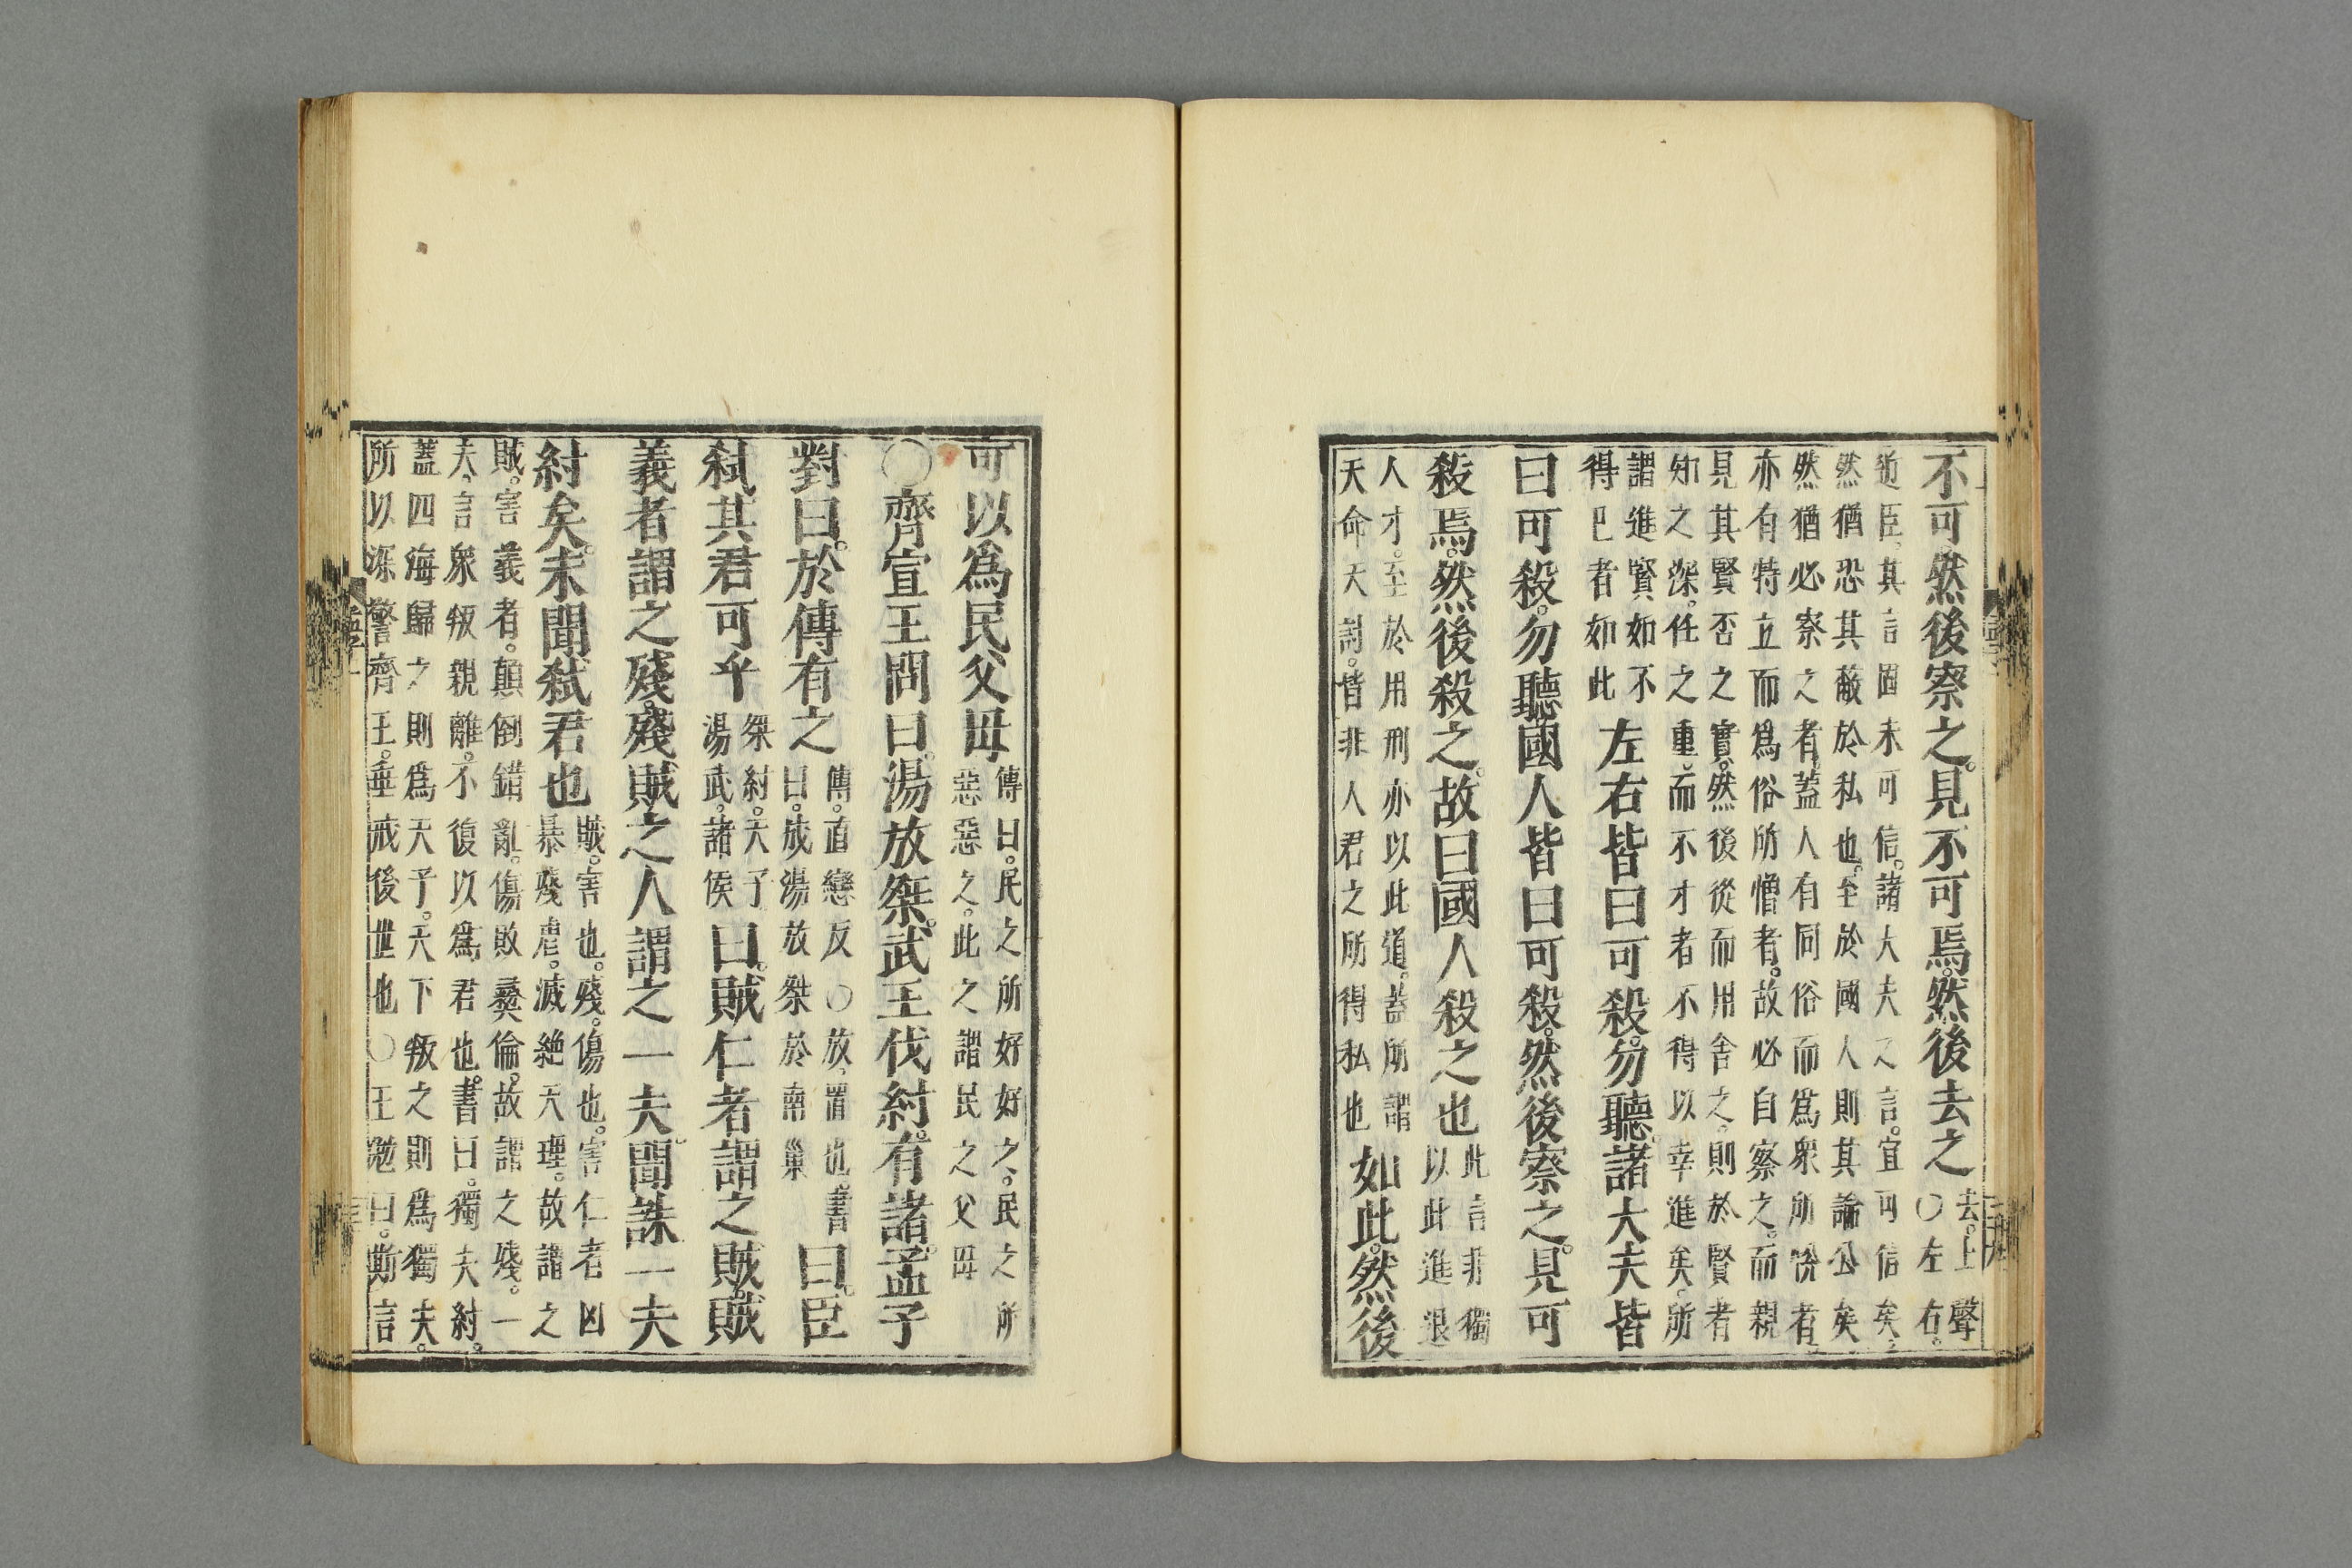 不可。然後察之。見不可焉。然後去之 去。上聲 〇左右。
近臣。其言固未可信。諸大夫之言。宜可信矣。
然猶恐其蔽於私也。至於國人則其論公矣。
然猶必察之者。蓋人有同俗而爲衆所悅者。
亦有特立而爲俗所憎者。故必自察之。而親
見其賢否之實。然後從而用舍之。則於賢者
知之深。任之重。而不才者不得以幸進矣。所
謂進賢如不
得已者如此
左右皆曰可殺。勿聽。諸大夫皆
曰可殺。勿聽。國人皆曰可殺。然後察之。見可
殺焉。然後殺之。故曰國人殺之也
此言非獨
以此進退
人才。至於用刑亦以此道。蓋所謂
天命天討。皆非人君之所得私也
如此。然後
可以爲民父母
傳曰。民之所好好之。民之所
惡惡之。此之謂民之父母
〇齊宣王問曰。湯放桀。武王伐紂。有諸。孟子
對曰。於傳有之
傳。直戀反〇放。置也。書
曰。成湯放桀於南巢
曰。臣
弒其君可乎
桀紂。天子
湯武。諸侯
曰。賊仁者謂之賊。賊
義者謂之殘。殘賊之人謂之一夫。聞誅一夫
紂矣。未聞弒君也
賊。害也。殘。傷也。害仁者凶
暴殘虐。滅絕天理。故謂之
賊。害義者。顛倒錯亂。傷敗彝倫。故謂之殘。一
夫。言衆叛親離。不復以爲君也。書曰。獨夫紂。
蓋四海歸之則爲天子。天下叛之則爲獨夫。
所以深警齊王。垂戒後世也〇王勉曰。斯言